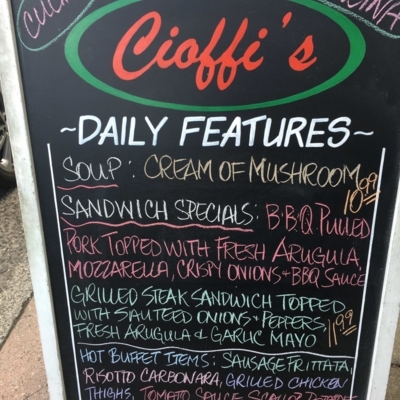 Cioffi's
~DAILY FEATURES~
SOUP: CREAM OF MUSHROOM
10.99
SANDWICH SPECIALS: B.B.Q PULLED
PORK TOPPED WITH FRESH ARUGULA,
MOZZARELLA, CRISPY ONIONS + BBQ SAUCE
GRILLED STEAK SANDWICH TOPPED
WITH SAUTEED ONIONS & PEPPERS,
FRESH ARUGULA & GARLIC MAYO 11.99
HOT BUFFET ITEMS: SAUSAGE FRITTATA,
RISOTTO CARBONARA, GRILLED CHICKEN
THIGHS, TOMATO SAUCE